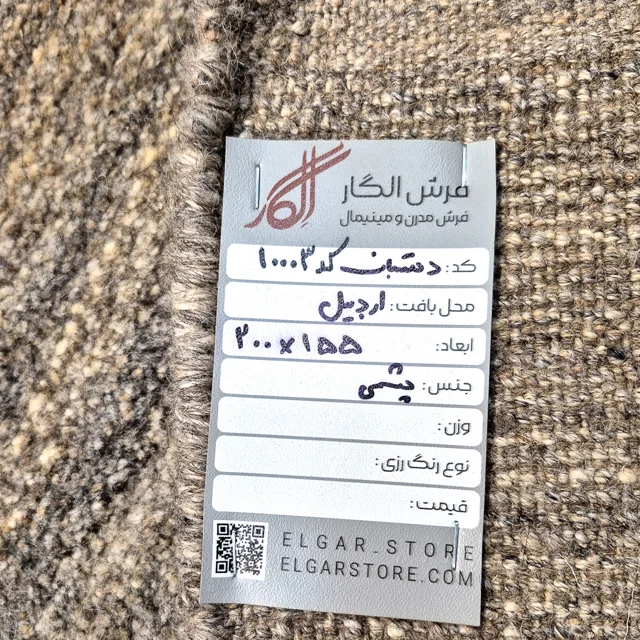 الگار
فرش الگار
فرش مدرن و مینیمال
کد: دستبافت کد ۱۰۰۰۳
محل بافت: اردبیل
ابعاد: ۲۰۰×۱۵۵
جنس: پشمی
وزن:
نوع رنگ رزی:
قیمت:
ELGAR_STORE
ELGARSTORE.COM